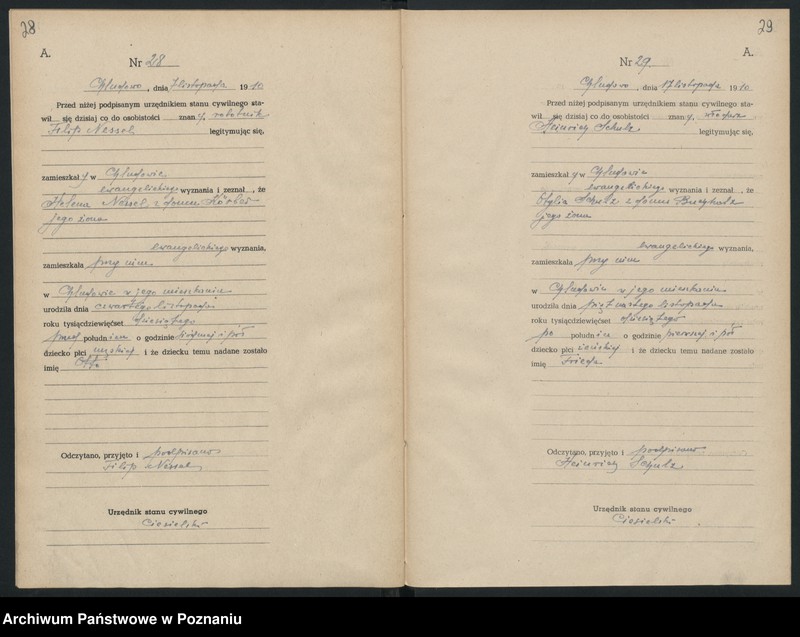 28
A.
Nr 28
Chludowo, dnia 7 listopada 1910
Przed niżej podpisanym urzędnikiem stanu cywilnego sta-
wił się dzisiaj co do osobistości znany, robotnik
Filip Nessel legitymując się,
zamieszkały w Chludowie
ewangelickiego wyznania i zeznał, że
Helena Nessel, z domu
jego żona
ewangelickiego wyznania,
zamieszkała przy nim
w Chludowie w jego mieszkaniu
urodziła dnia czwartego listopada
roku tysiącdziewięćset dziesiątego
przed południem o godzinie i pół
dziecko płci męskiej i że dziecku temu nadane zostało
imię Otto
Odczytano, przyjęto i podpisano
Filip Nessel
Urzędnik stanu cywilnego
Ciesielski
29
A.
Nr 29.
Chludowo, dnia 17 listopada 1910
Przed niżej podpisanym urzędnikiem stanu cywilnego sta-
wił się dzisiaj co do osobistości znany,
Heinrich Schulz legitymując się,
zamieszkały w Chludowie
ewangelickiego wyznania i zeznał, że
Otylia Schulz z domu
jego żona
ewangelickiego wyznania,
zamieszkała przy nim
w Chludowie w jego mieszkaniu
urodziła dnia piętnastego listopada
roku tysiącdziewięćset dziesiątego
po południu o godzinie pierwszej i pół
dziecko płci żeńskiej i że dziecku temu nadane zostało
imię Frieda
Odczytano, przyjęto i podpisano
Heinrich Schulz
Urzędnik stanu cywilnego
Ciesielski
Archiwum Państwowe w Poznaniu